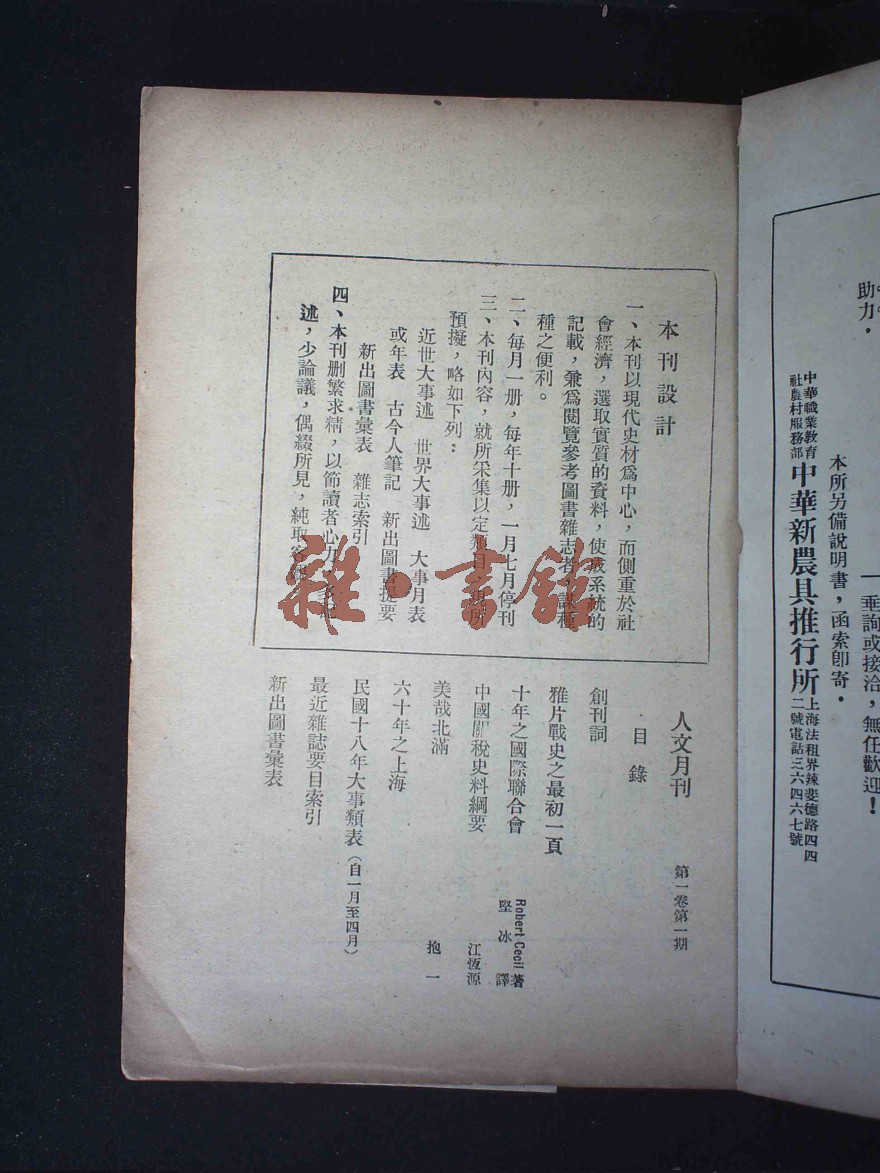 助力．
垂詢或接洽，無任歡迎！
本所另備說明書，函索卽寄．
中華職業教育
社農村服務部
中華新農具推行所
上海法租界辣斐德路四四
二號電話三六四六七號
本刊設計
一、本刊以現代史材爲中心，而側重於社
會經濟，選取實質的資料，使成系統的
記載，兼爲閱覽參考圖書雜志者
種之便利。
二、每月一册，每年十册，一月七月停刊
三、本刊內容，就所采集以定類目
預擬，略如下列：
近世大事述　世界大事述　大事月表
或年表　古今人筆記　新出圖書提要
新出圖書彙表　雜志索引
四、本刊删繁求精，以節讀者心力
述，少論議，偶綴所見，純取客
雜·書館
人文月刊　第一卷第一期
目錄
創刊詞
雅片戰史之最初一頁
十年之國際聯合會　Robert Cecil 著
堅冰 譯
中國關稅史料綱要　江恆源
美哉北滿　抱一
六十年之上海
民國十八年大事類表（自一月至四月）
最近雜誌要目索引
新出圖書彙表